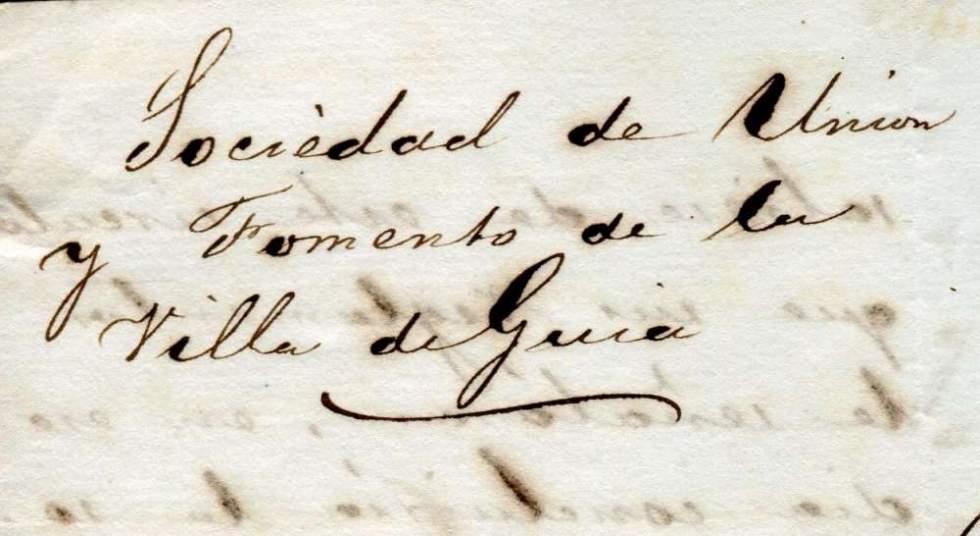 Socièdad de Union
y Fomento de la
Villa de Guia